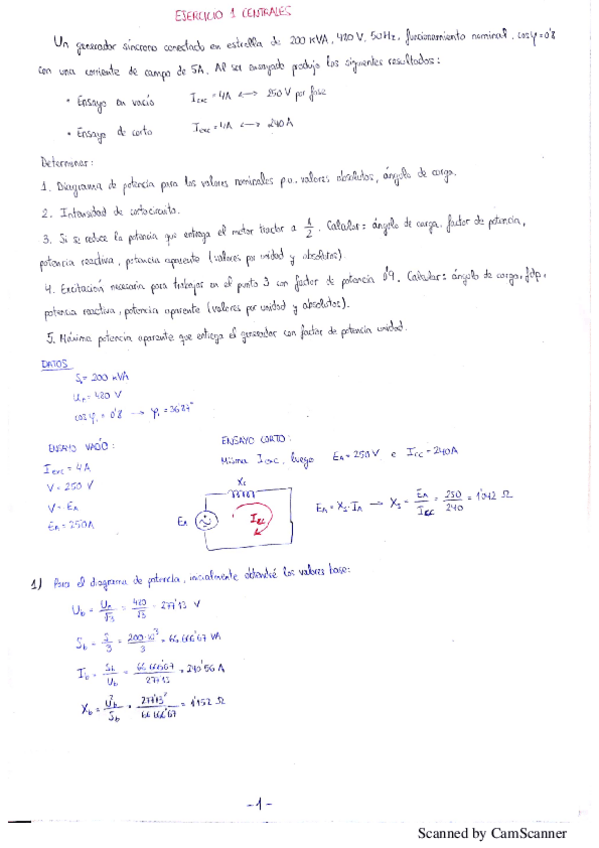 EJERCICIO 1 CENTRALES
Un generador síncrono conectado en estrella de 200 KVA, 480 V, 50Hz, funcionamiento nominal, cosφ=0'8
con una corriente de campo de 5A. Al ser ensayado produjo los siguientes resultados:
• Ensayo en vacío Iexc = 4A <--> 250 V por fase
• Ensayo de corto Iexc = 4A <--> 240 A
Determinar:
1. Diagrama de potencia para los valores nominales p.u. valores absolutos, ángulo de carga.
2. Intensidad de cortocircuito.
3. Si se reduce la potencia que entrega el motor tractor a 1/2. Calcular: ángulo de carga, factor de potencia,
potencia reactiva, potencia aparente (valores por unidad y absolutos).
4. Excitación necesaria para trabajar en el punto 3 con factor de potencia 0'9. Calcular: ángulo de carga, fdp,
potencia reactiva, potencia aparente (valores por unidad y absolutos).
5. Máxima potencia aparente que entrega el generador con factor de potencia unidad.
DATOS
S = 200 KVA
Un = 480 V
cosφ = 0'8 → φ = 36'87°
ENSAYO VACÍO: ENSAYO CORTO:
Iexc = 4A Misma Iexc, luego EA = 250V e Icc = 240A
V = 250 V
V = EA
EA = 250A
Xs
EA
Icc
EA = Xs·IA → Xs = EA/Icc = 250/240 = 1'042 Ω
1) Para el diagrama de potencia, inicialmente obtendré los valores base:
Ub = Un/√3 = 480/√3 = 277'13 V
Sb = S/3 = 200·10³/3 = 66.666'67 VA
Ib = Sb/Ub = 66.666'67/277'13 = 240'56 A
Xb = Ub²/Sb = 277'13²/66.666'67 = 1'152 Ω
-1-
Scanned by CamScanner